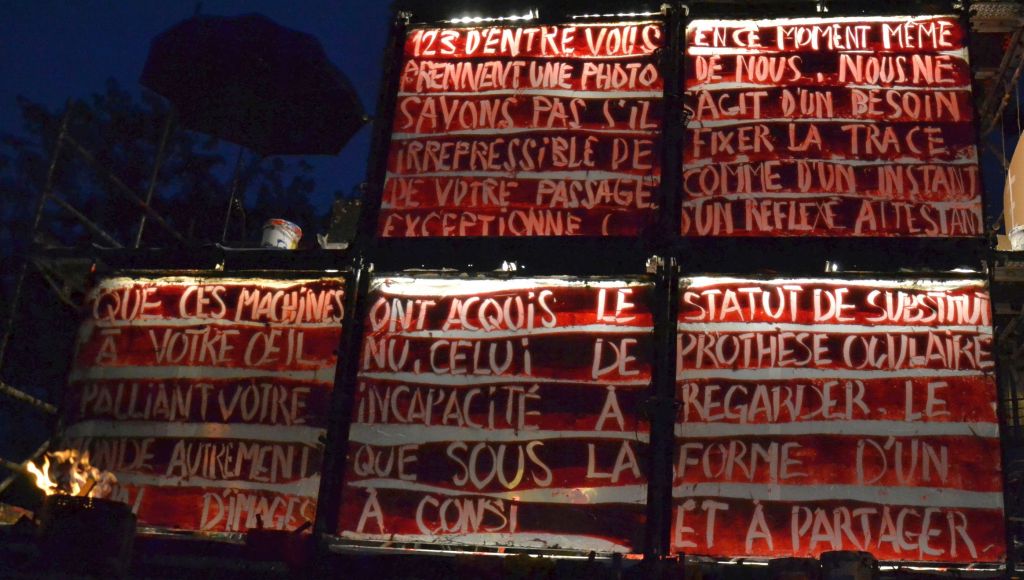 123 D'ENTRE VOUS EN CE MOMENT MÊME
PRENNENT UNE PHOTO DE NOUS. NOUS NE
SAVONS PAS S'IL S'AGIT D'UN BESOIN
IRREPRESSIBLE DE FIXER LA TRACE
DE VOTRE PASSAGE COMME D'UN INSTANT
EXCEPTIONNE D'UN REFLEXE ATTESTANT
QUE CES MACHINES ONT ACQUIS LE STATUT DE SUBSTITUT
A VOTRE ŒIL NU, CELUI DE PROTHESE OCULAIRE
PALLIANT VOTRE INCAPACITÉ À REGARDER LE
MONDE AUTREMENT QUE SOUS LA FORME D'UN
D'IMAGES À CONSI ET À PARTAGER